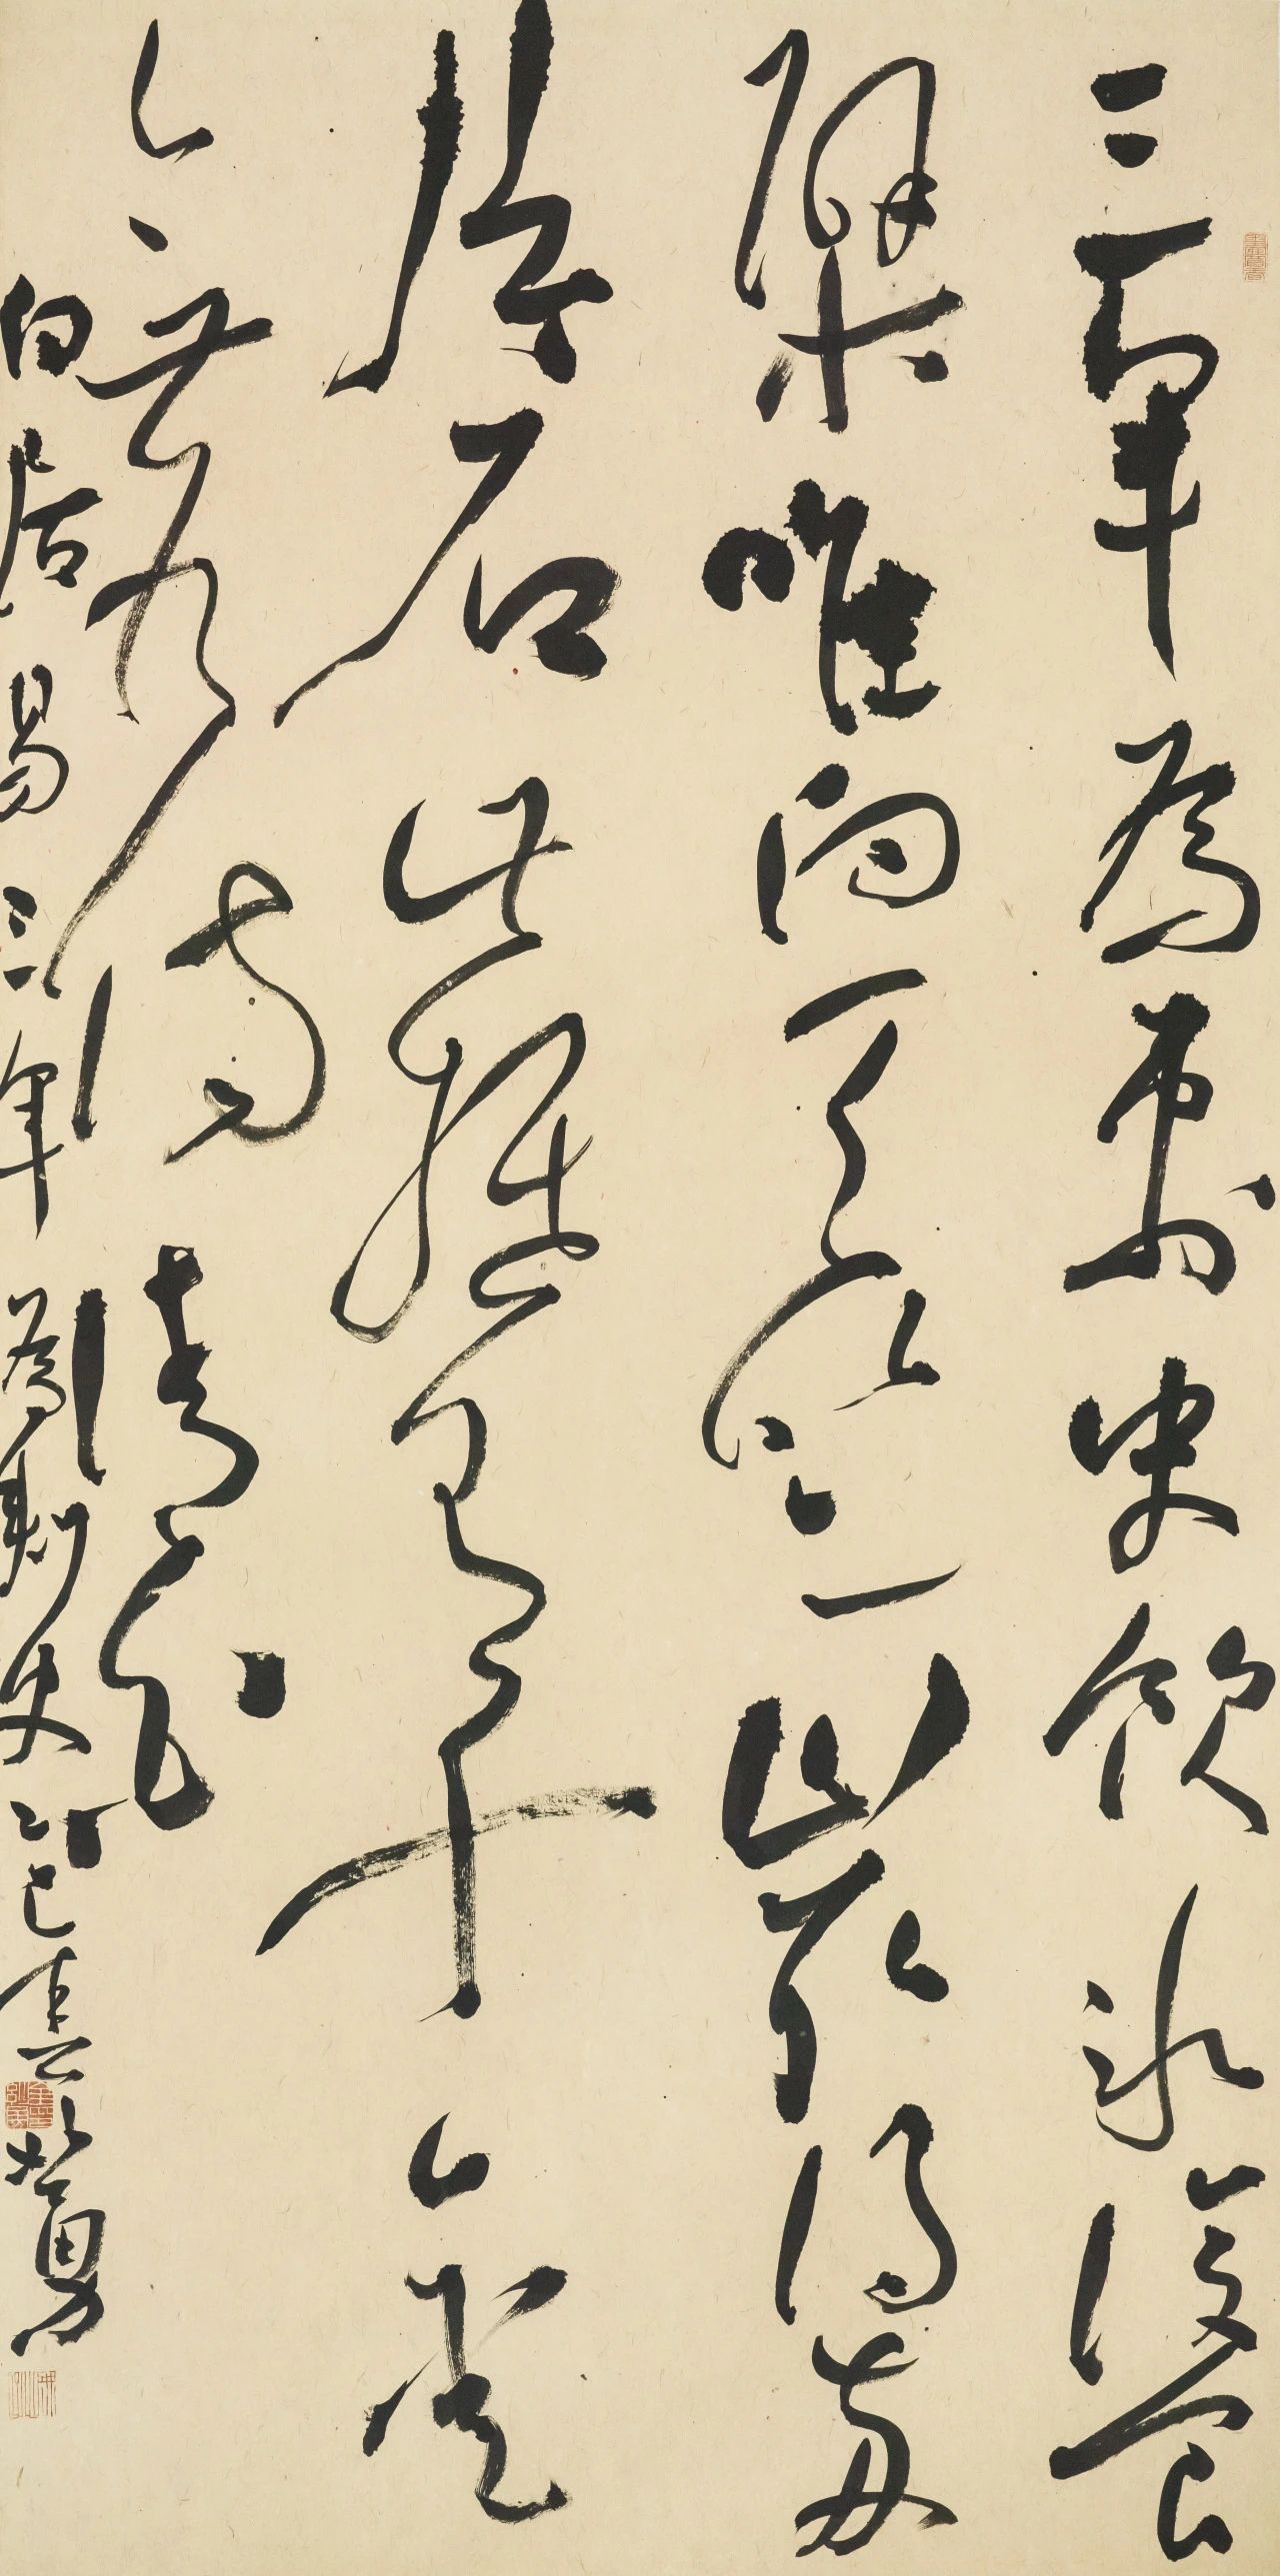 三年為刺史飲冰復食
檗唯向天竺山取得兩
片石此抵有千金
無乃傷清白
白居易三年為刺史乙巳